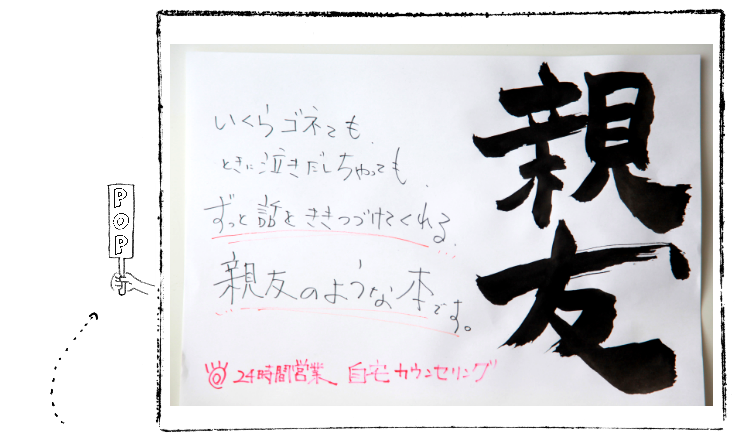 親友
いくらゴネても、
ときに泣きだしちゃっても、
ずっと話をききつづけてくれる、
親友のような本です。
24時間営業 自宅カウンセリング
POP